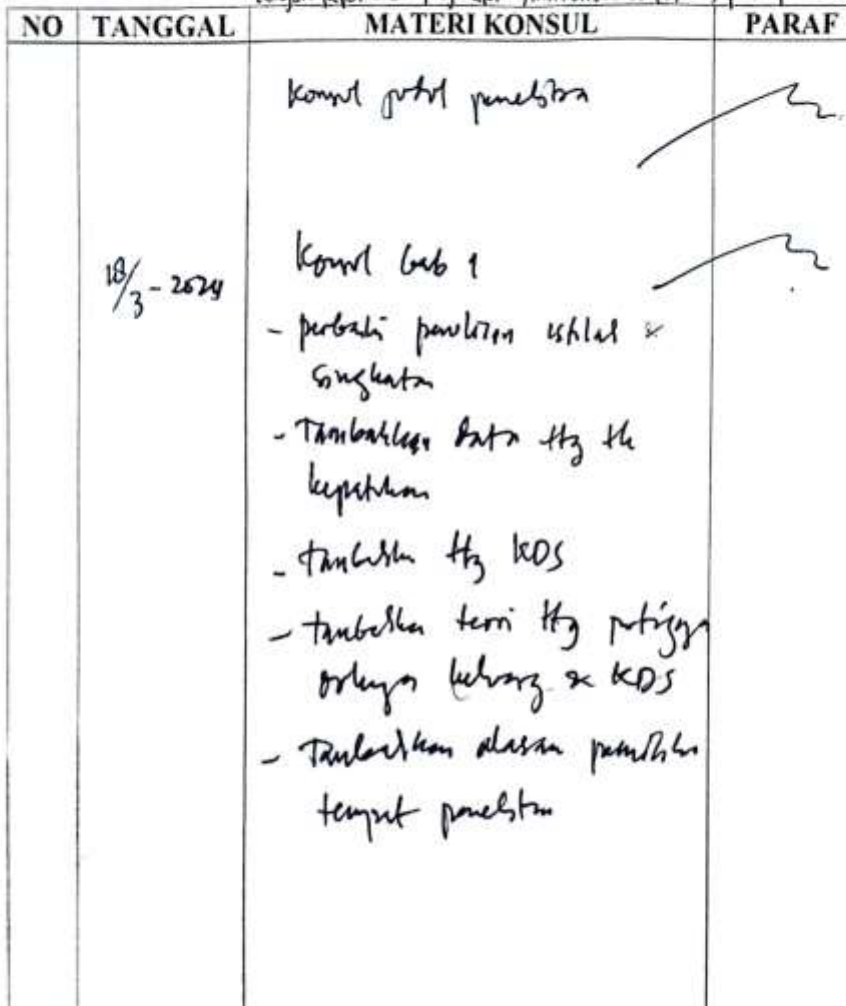 NO TANGGAL MATERI KONSUL PARAF
Konsul judul penelitian
18/3-2024 Konsul bab 1
- perbaiki penulisan istilah &
singkatan
- Tambahkan data ttg tk
kepatuhan
- tambahkan ttg KDS
- tambahkan teori ttg pentingnya
dukungan keluarga & KDS
- Tambahkan alasan pemilihan
tempat penelitian